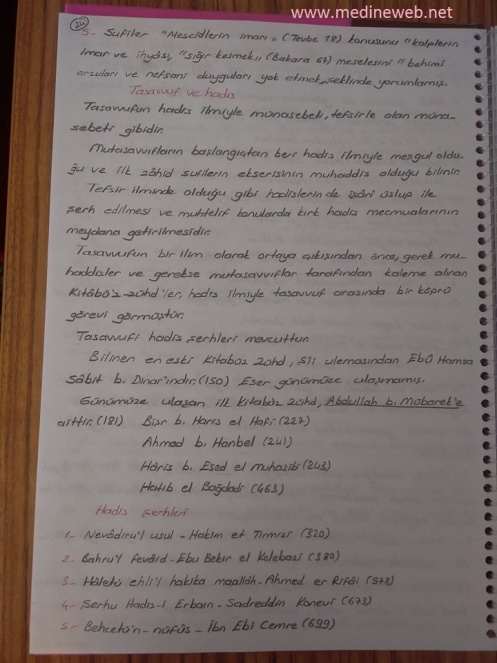 www.medineweb.net
24
5- Sufiler "Mescidlerin imarı" (Tevbe 18) konusunu "kalplerin
imar ve ihyası, "sığır kesmek" (Bakara 67) meselesini "behimi
arzuları ve nefsani duyguları yok etmek, şeklinde yorumlamış.
Tasavvuf ve hadis
Tasavvufun hadis ilmiyle münasebeti, tefsirle olan müna-
sebeti gibidir.
Mutasavvıfların başlangıçtan beri hadis ilmiyle meşgul oldu-
ğu ve ilk zâhid sufilerin ekserisinin muhaddis olduğu bilinir.
Tefsir ilminde olduğu gibi hadislerin de işâri üslup ile
şerh edilmesi ve muhtelif konularda kırk hadis mecmualarının
meydana getirilmesidir.
Tasavvufun bir ilim olarak ortaya çıkışından önce, gerek mu-
haddisler ve gerekse mutasavvıflar tarafından kaleme alınan
Kitâbü'z-zühd'ler, hadis ilmiyle tasavvuf arasında bir köprü
görevi görmüştür.
Tasavvufi hadis şerhleri mevcuttur.
Bilinen en eski Kitabüz zühd, Şii ulemasından Ebû Hamza
Sâbit b. Dinar'ındır. (150) Eser günümüze ulaşmamış.
Günümüze ulaşan ilk Kitabüz zühd, Abdullah b. Mübarek'e
aittir. (181) Bişr b. Haris el Hafi (227)
Ahmed b. Hanbel (241)
Hâris b. Esed el muhasibi (243)
Hatib el Bağdadi (463)
Hadis Şerhleri
1- Nevâdiru'l usul - Hakim et Tirmizi (320)
2- Bahru'l fevâid - Ebu Bekir el Kelebazi (380)
3- Hâletü ehli'l hakika maallâh - Ahmed er Rifâi (578)
4- Şerhu Hadis-i Erbain - Sadreddin Konevi (673)
5- Behcetü'n - nüfûs - İbn Ebi Cemre (699)